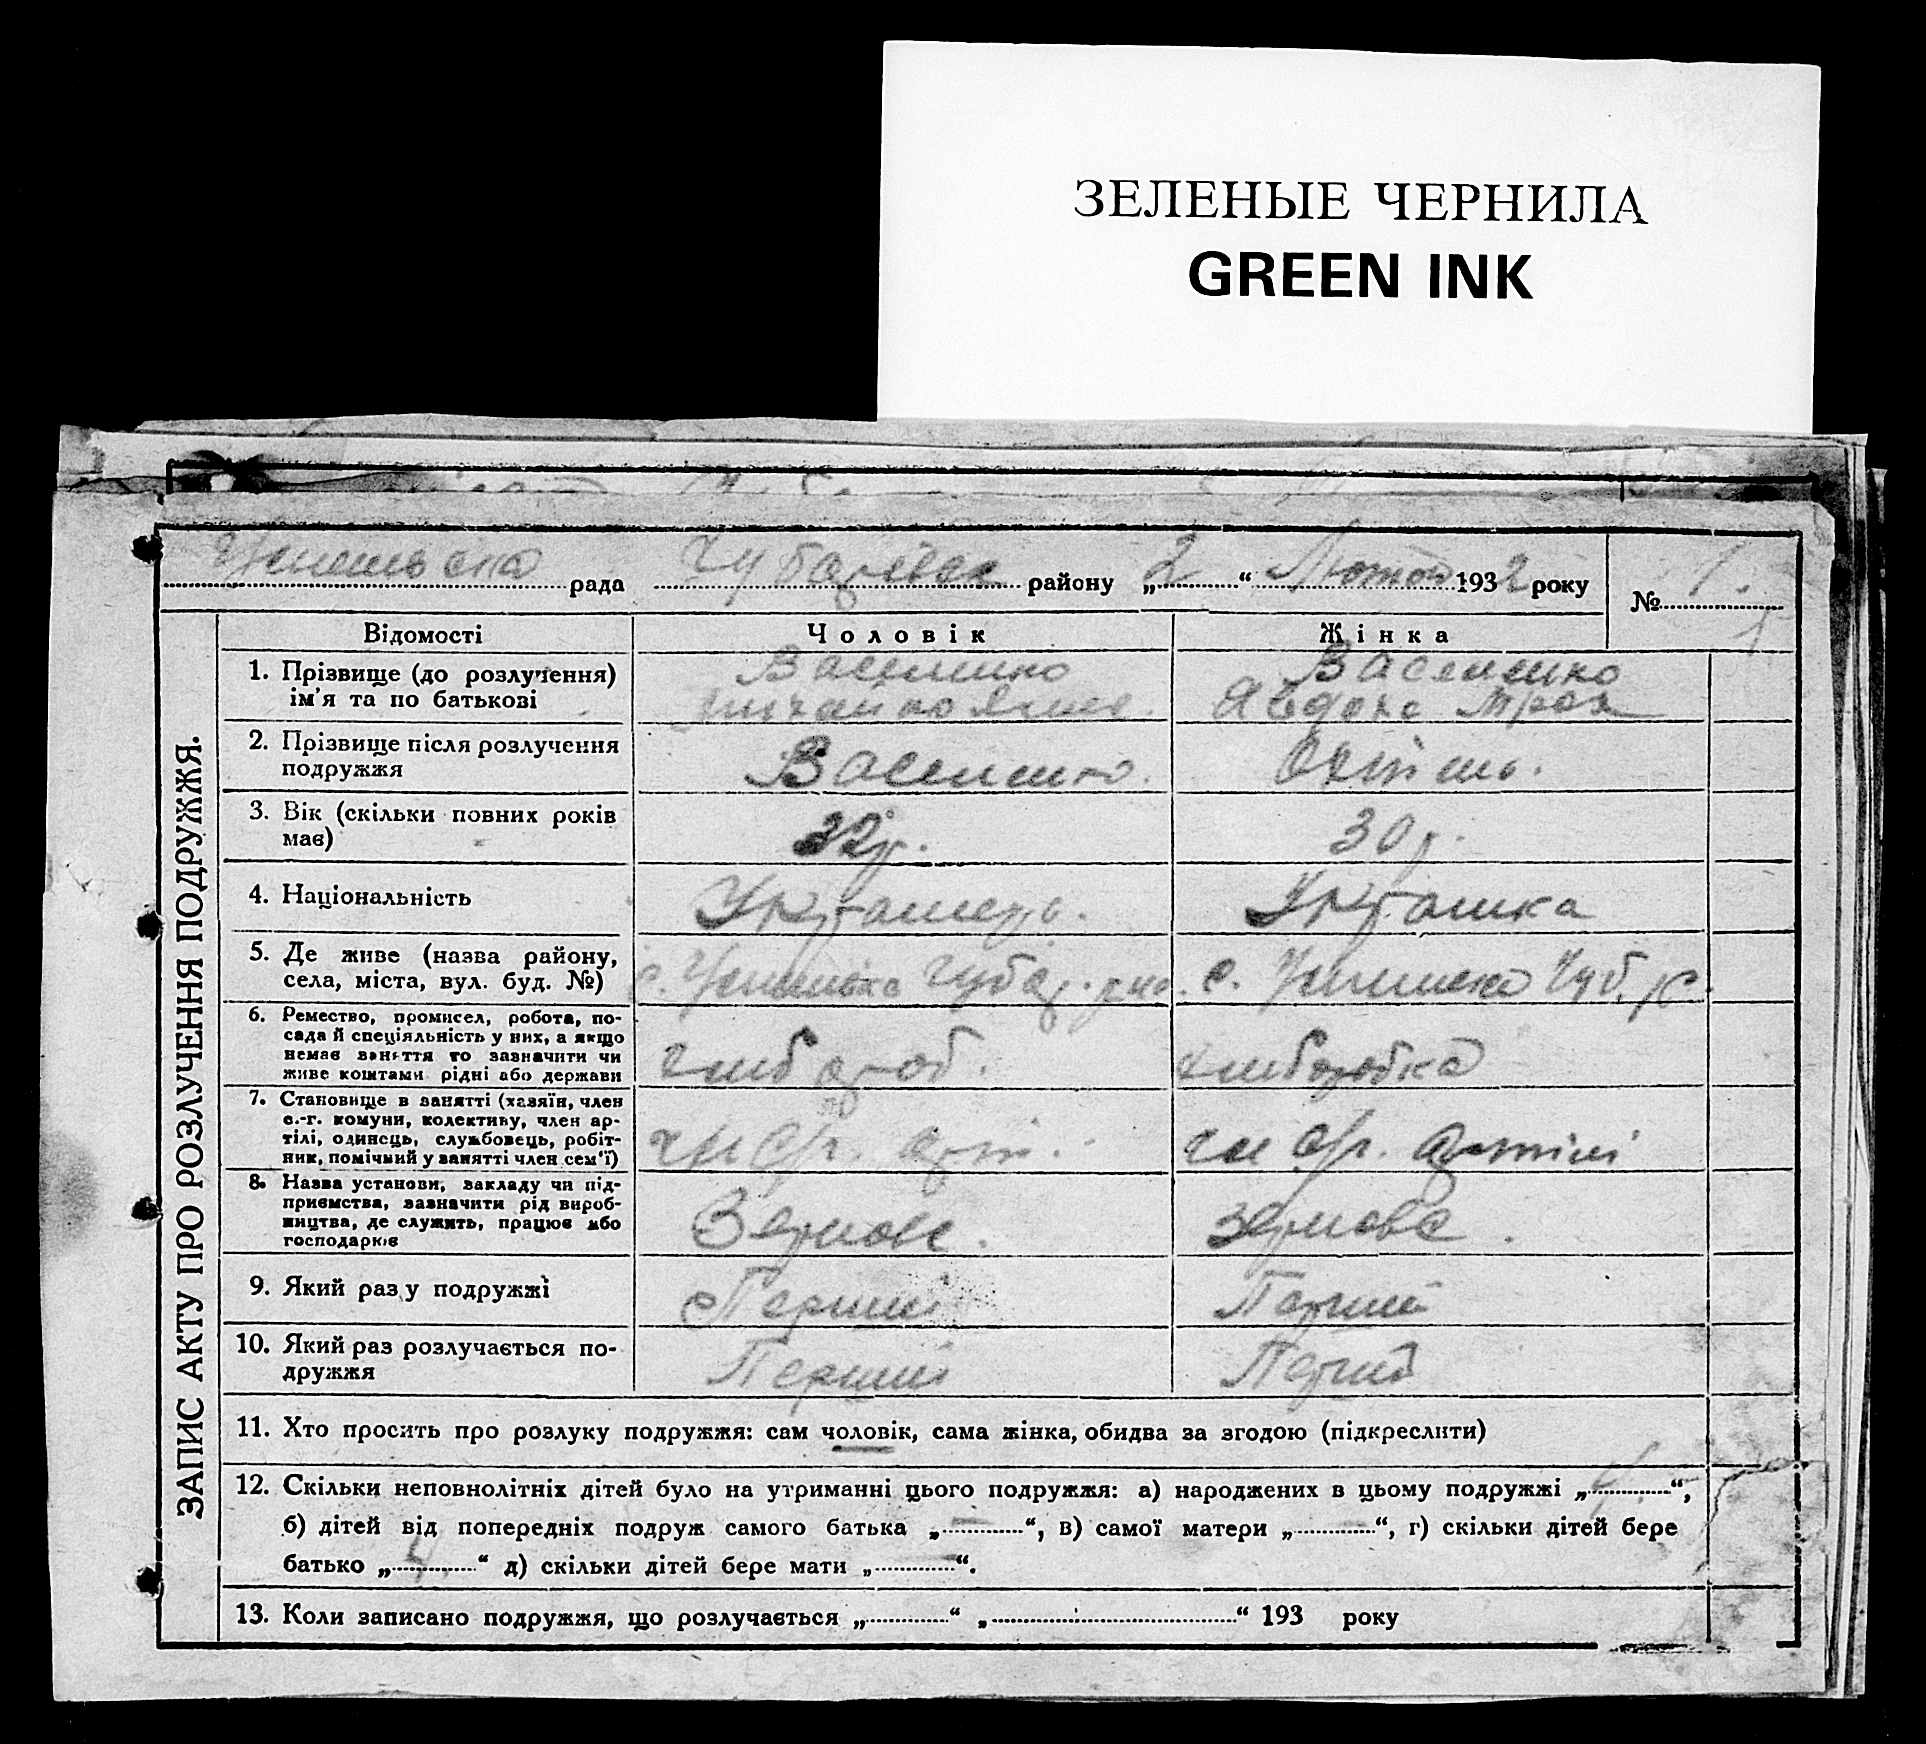 ЗЕЛЕНЫЕ ЧЕРНИЛА
GREEN INK
рада Чубарівськ району „2“ Лютого 1932 року № 1.
ЗАПИС АКТУ ПРО РОЗЛУЧЕННЯ ПОДРУЖЖЯ.
Відомості Чоловік Жінка
1. Прізвище (до розлучення) ім'я та по батькові
Василенко Василенко
2. Прізвище після розлучення подружжя
Василенко.
3. Вік (скільки повних років має)
32р. 30р.
4. Національність
Українець. Українка
5. Де живе (назва району, села, міста, вул. буд. №)
с. Чубар. с. Чуб. р.
6. Ремество, промисел, робота, по-
сада й спеціяльність у них, а якщо
немає заняття то зазначити чи
живе коштами рідні або держави
хлібороб. хліборобка
7. Становище в занятті (хазяїн, член
с.-г. комуни, колективу, член ар-
тілі, одинець, службовець, робіт-
ник, помічний у занятті член сем'ї)
чл с/г. арт. чл с/г. артілі
8. Назва установи, закладу чи під-
приємства, зазначити рід вироб-
ництва, де служить, працює або
господарює
Зернове. зернове.
9. Який раз у подружжі
Перший Перший
10. Який раз розлучається по-
дружжя
Перший Перший
11. Хто просить про розлуку подружжя: сам чоловік, сама жінка, обидва за згодою (підкреслити)
12. Скільки неповнолітніх дітей було на утриманні цього подружжя: а) народжених в цьому подружжі „4“,
б) дітей від попередніх подруж самого батька „—“, в) самої матери „—“, г) скільки дітей бере
батько „4“ д) скільки дітей бере мати „—“.
13. Коли записано подружжя, що розлучається „ “ „ “ 193 року